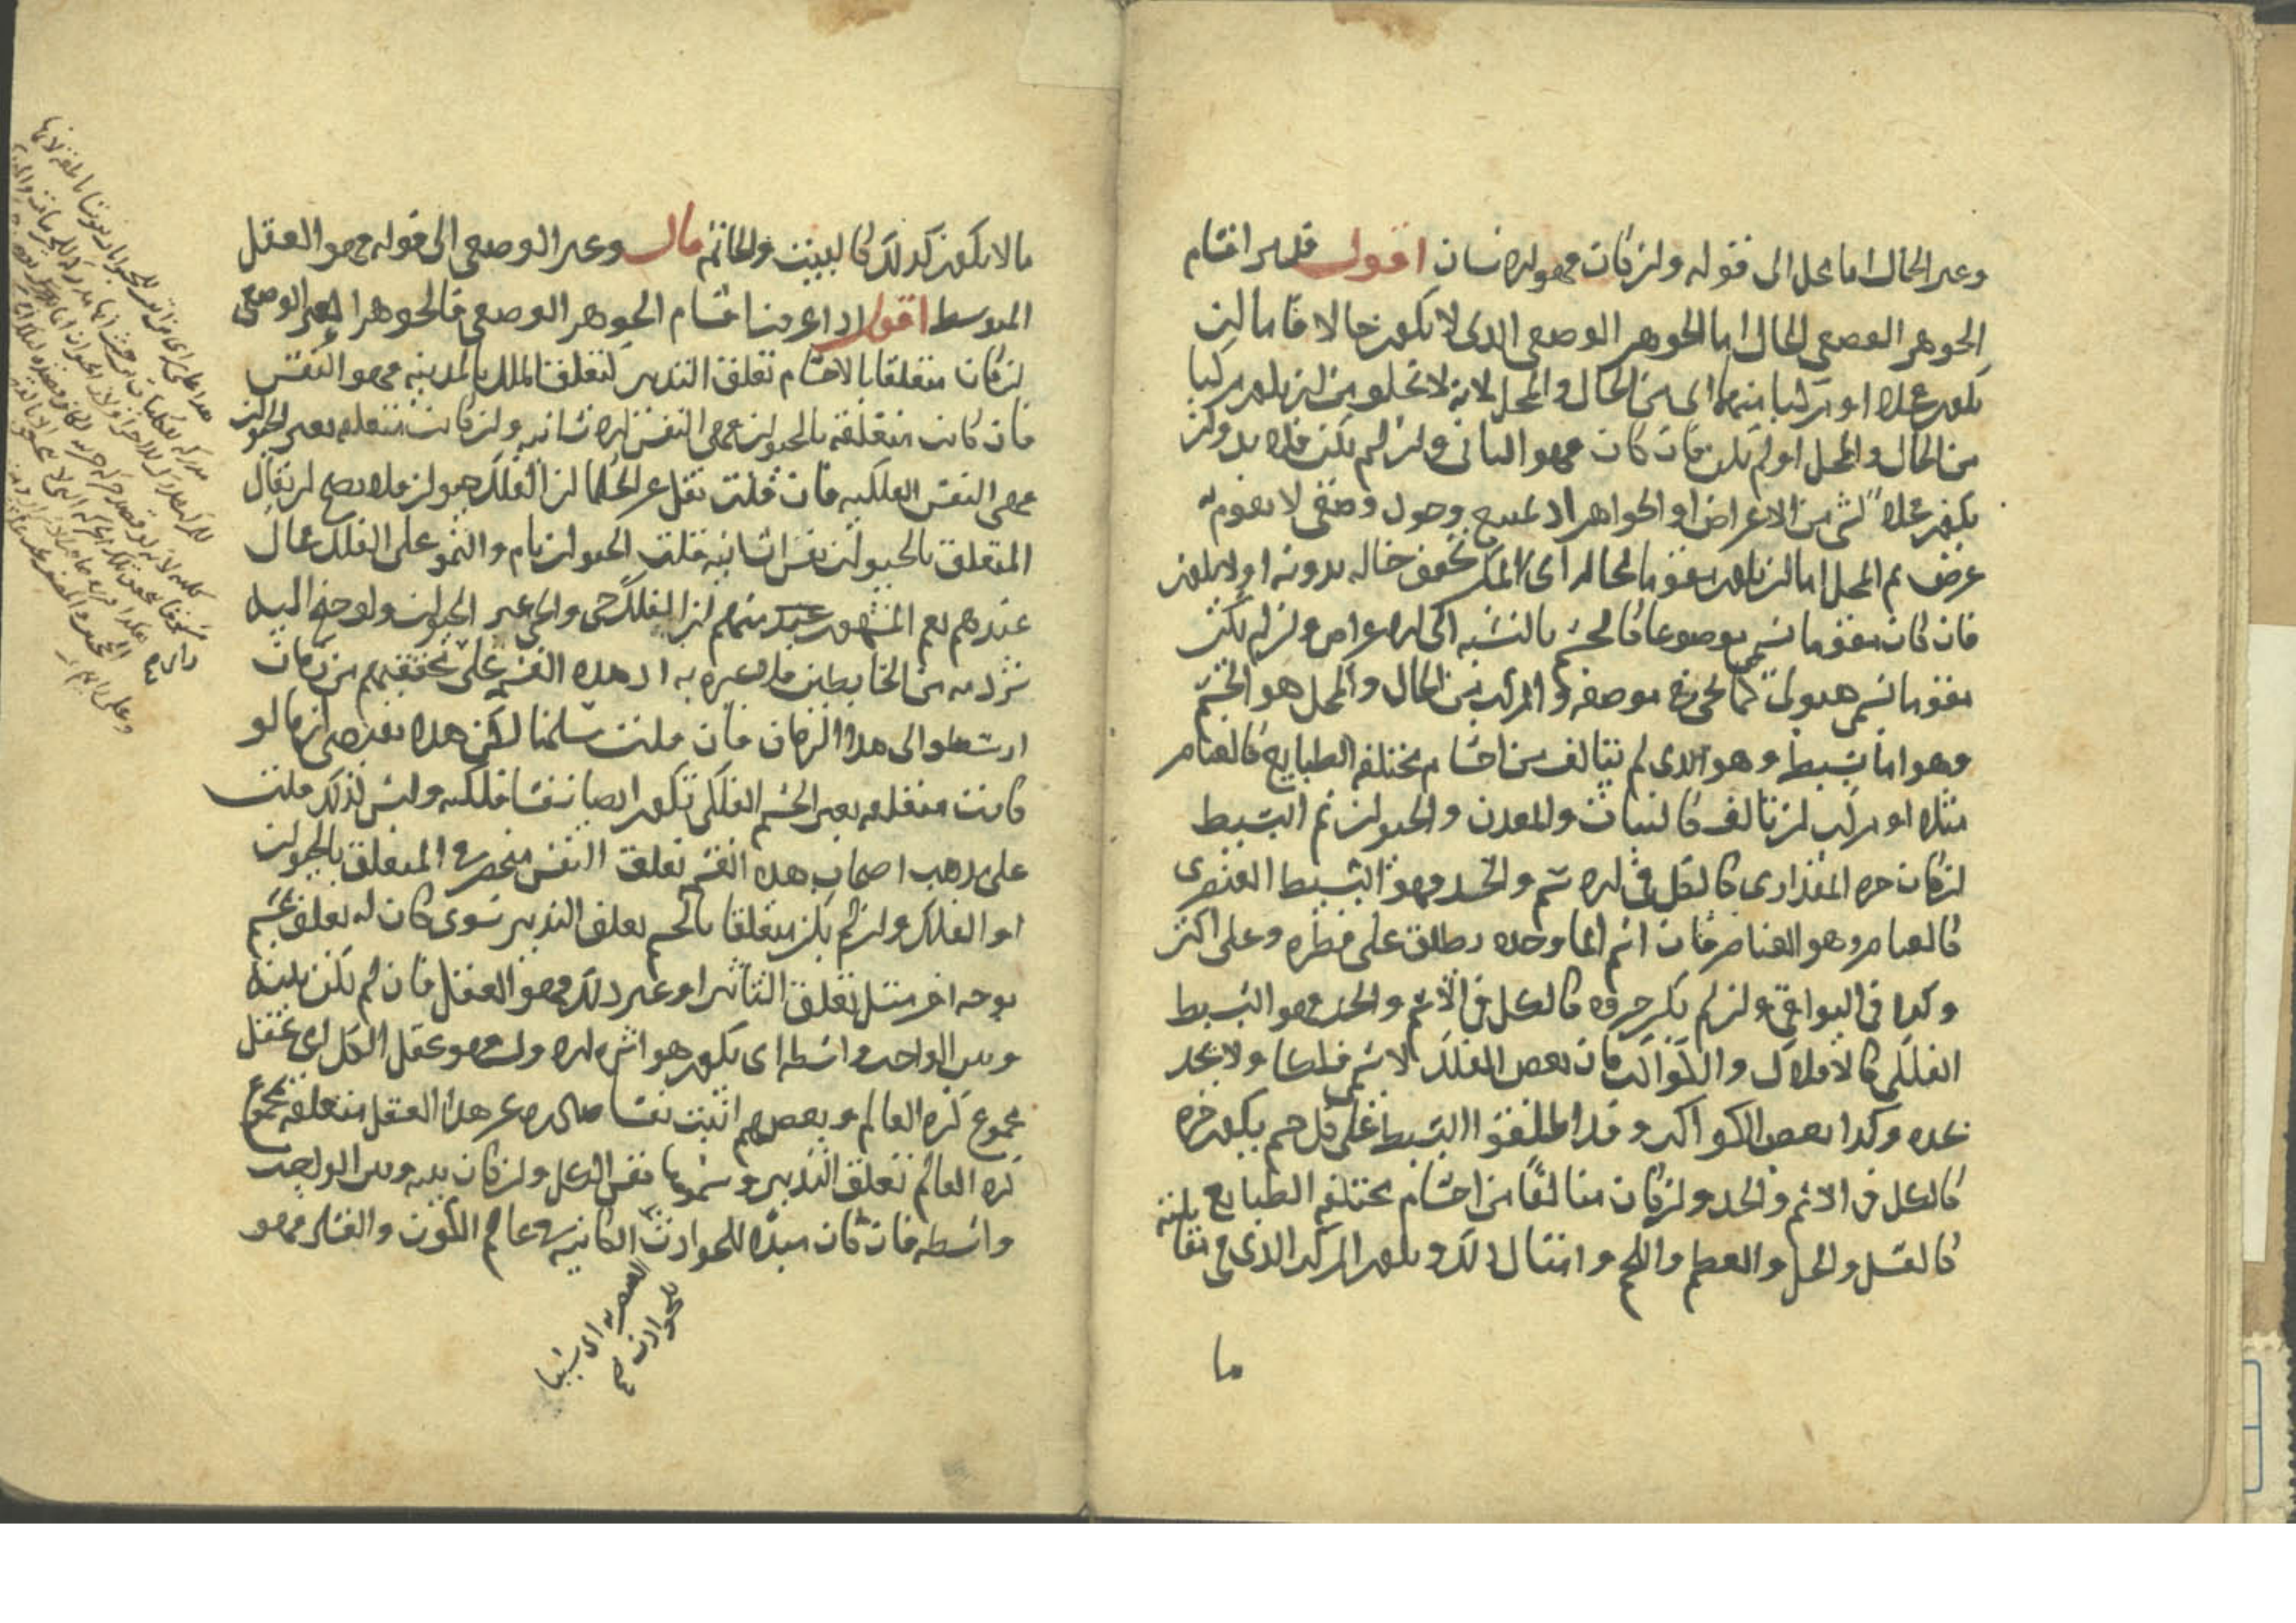 وغير الحال اما محل الى قوله وان كان فهو الانسان اقول قسم اقسام
الجوهر الوضعي الحال اما الجوهر الوضعي الذي لا يكون حالا فاما ان
يكون محلا او مركبا منهما اي من الحال والمحل لانه لا يخلو من ان يكون مركبا
من الحال والمحل او لم يكن فان كان فهو الثاني وان لم يكن فلا بد وان
يكون محلا لشي من الاعراض او الجواهر اذ يمتنع وجود وضعي لا يقوم به
عرض ثم المحل اما ان يكون متقوما بحاله اي لم يتحقق حاله بدونه او لا يكون
فان كان متقوما يسمى موضوعا كالجسم بالنسبة الى الاعراض وان لم يكن
متقوما يسمى هيولى كما يجيء موضعه والمركب من الحال والمحل هو الجسم
وهو اما بسيط وهو الذي لم يتالف من اجسام مختلفة الطبايع كالعناصر
مثلا او مركب ان تالف كالنبات والمعدن والحيوان ثم البسيط
ان كان جزءه المقداري كالكل في الاسم والحد فهو البسيط العنصري
كالعناصر وهو العناصر فان اسم الماء وحده يطلق على قطره وعلى اكثر
وكذا في البواقي وان لم يكن جزؤه كالكل في الاسم والحد فهو البسيط
الفلكي كالافلاك والكواكب فان بعض الفلك لا يسمى فلكا ولا يحد
بحده وكذا بعض الكواكب وقد اطلقوا البسيط على كل جسم يكون جزءه
كالكل في الاسم والحد وان كان متالفا من اجسام مختلفة الطبايع
كالعسل والخل والعظم واللحم وامثال ذلك ويكون المركب الذي في مقابلته
ما
ما لا يكون كذلك كالبيت والخاتم قال وغير الوضعي الى قوله فهو العقل
المتوسط اقول اذا عرفت اقسام الجوهر الوضعي فالجوهر الغير الوضعي
ان كان متعلقا بالاجسام تعلق التدبير كتعلق الملك بالمدينة فهو النفس
فان كانت متعلقة بالحيوان فهي النفس الانسانية وان كانت متعلقة بغير الحيوان
فهي النفس الفلكية فان قلت نقل عن الحكما ان الفلك حيوان فلا يصح ان يقال
المتعلق بالحيوان نفس انسانية قلت الحيوان نام والنمو على الفلك محال
عندهم نعم المشهور عند منهم ان الفلك حي والحي غير الحيوان ولو جنح اليه
شرذمة من الخابطين فلا عبرة به اذ هذه القسمة على تحقيقهم من زمان
ارسطو الى هذا الزمان فان قلت سلمنا لكن هذه تقتضي انها لو
كانت متعلقة بغير الجسم الفلكي تكون ايضا نفسا فلكية وليس كذلك قلت
على مذهب اصحاب هذه القسمة تعلق النفس منحصر في المتعلق بالحيوان
او الفلك وان لم يكن متعلقا بالجسم تعلق التدبير سوى كان له تعلق بجسم
بوجه اخر مثل تعلق التاثير او غير ذلك فهو العقل فان لم يكن بينه
وبين الواجب واسطة اي يكون هو اثره الاول فهو عقل الكل اي عقل
مجموع كرة العالم وبعضهم اثبت نفسا صادرة عن هذا العقل متعلقة بمجموع
كرة العالم تعلق التدبير وسموها نفس الكل وان كان بينه وبين الواجب
واسطة فان كان مبدء للحوادث الكائنة في عالم الكون والفساد فهو
العنصرية اي سببا
للحوادث